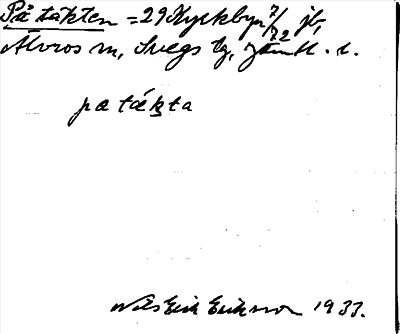 På täkten = 29 Kyrkbyn 7/72 jb,
Älvros sn, Svegs tg, Jämtl. l.
pa täkta
Nils Erik Eriksson 1933.